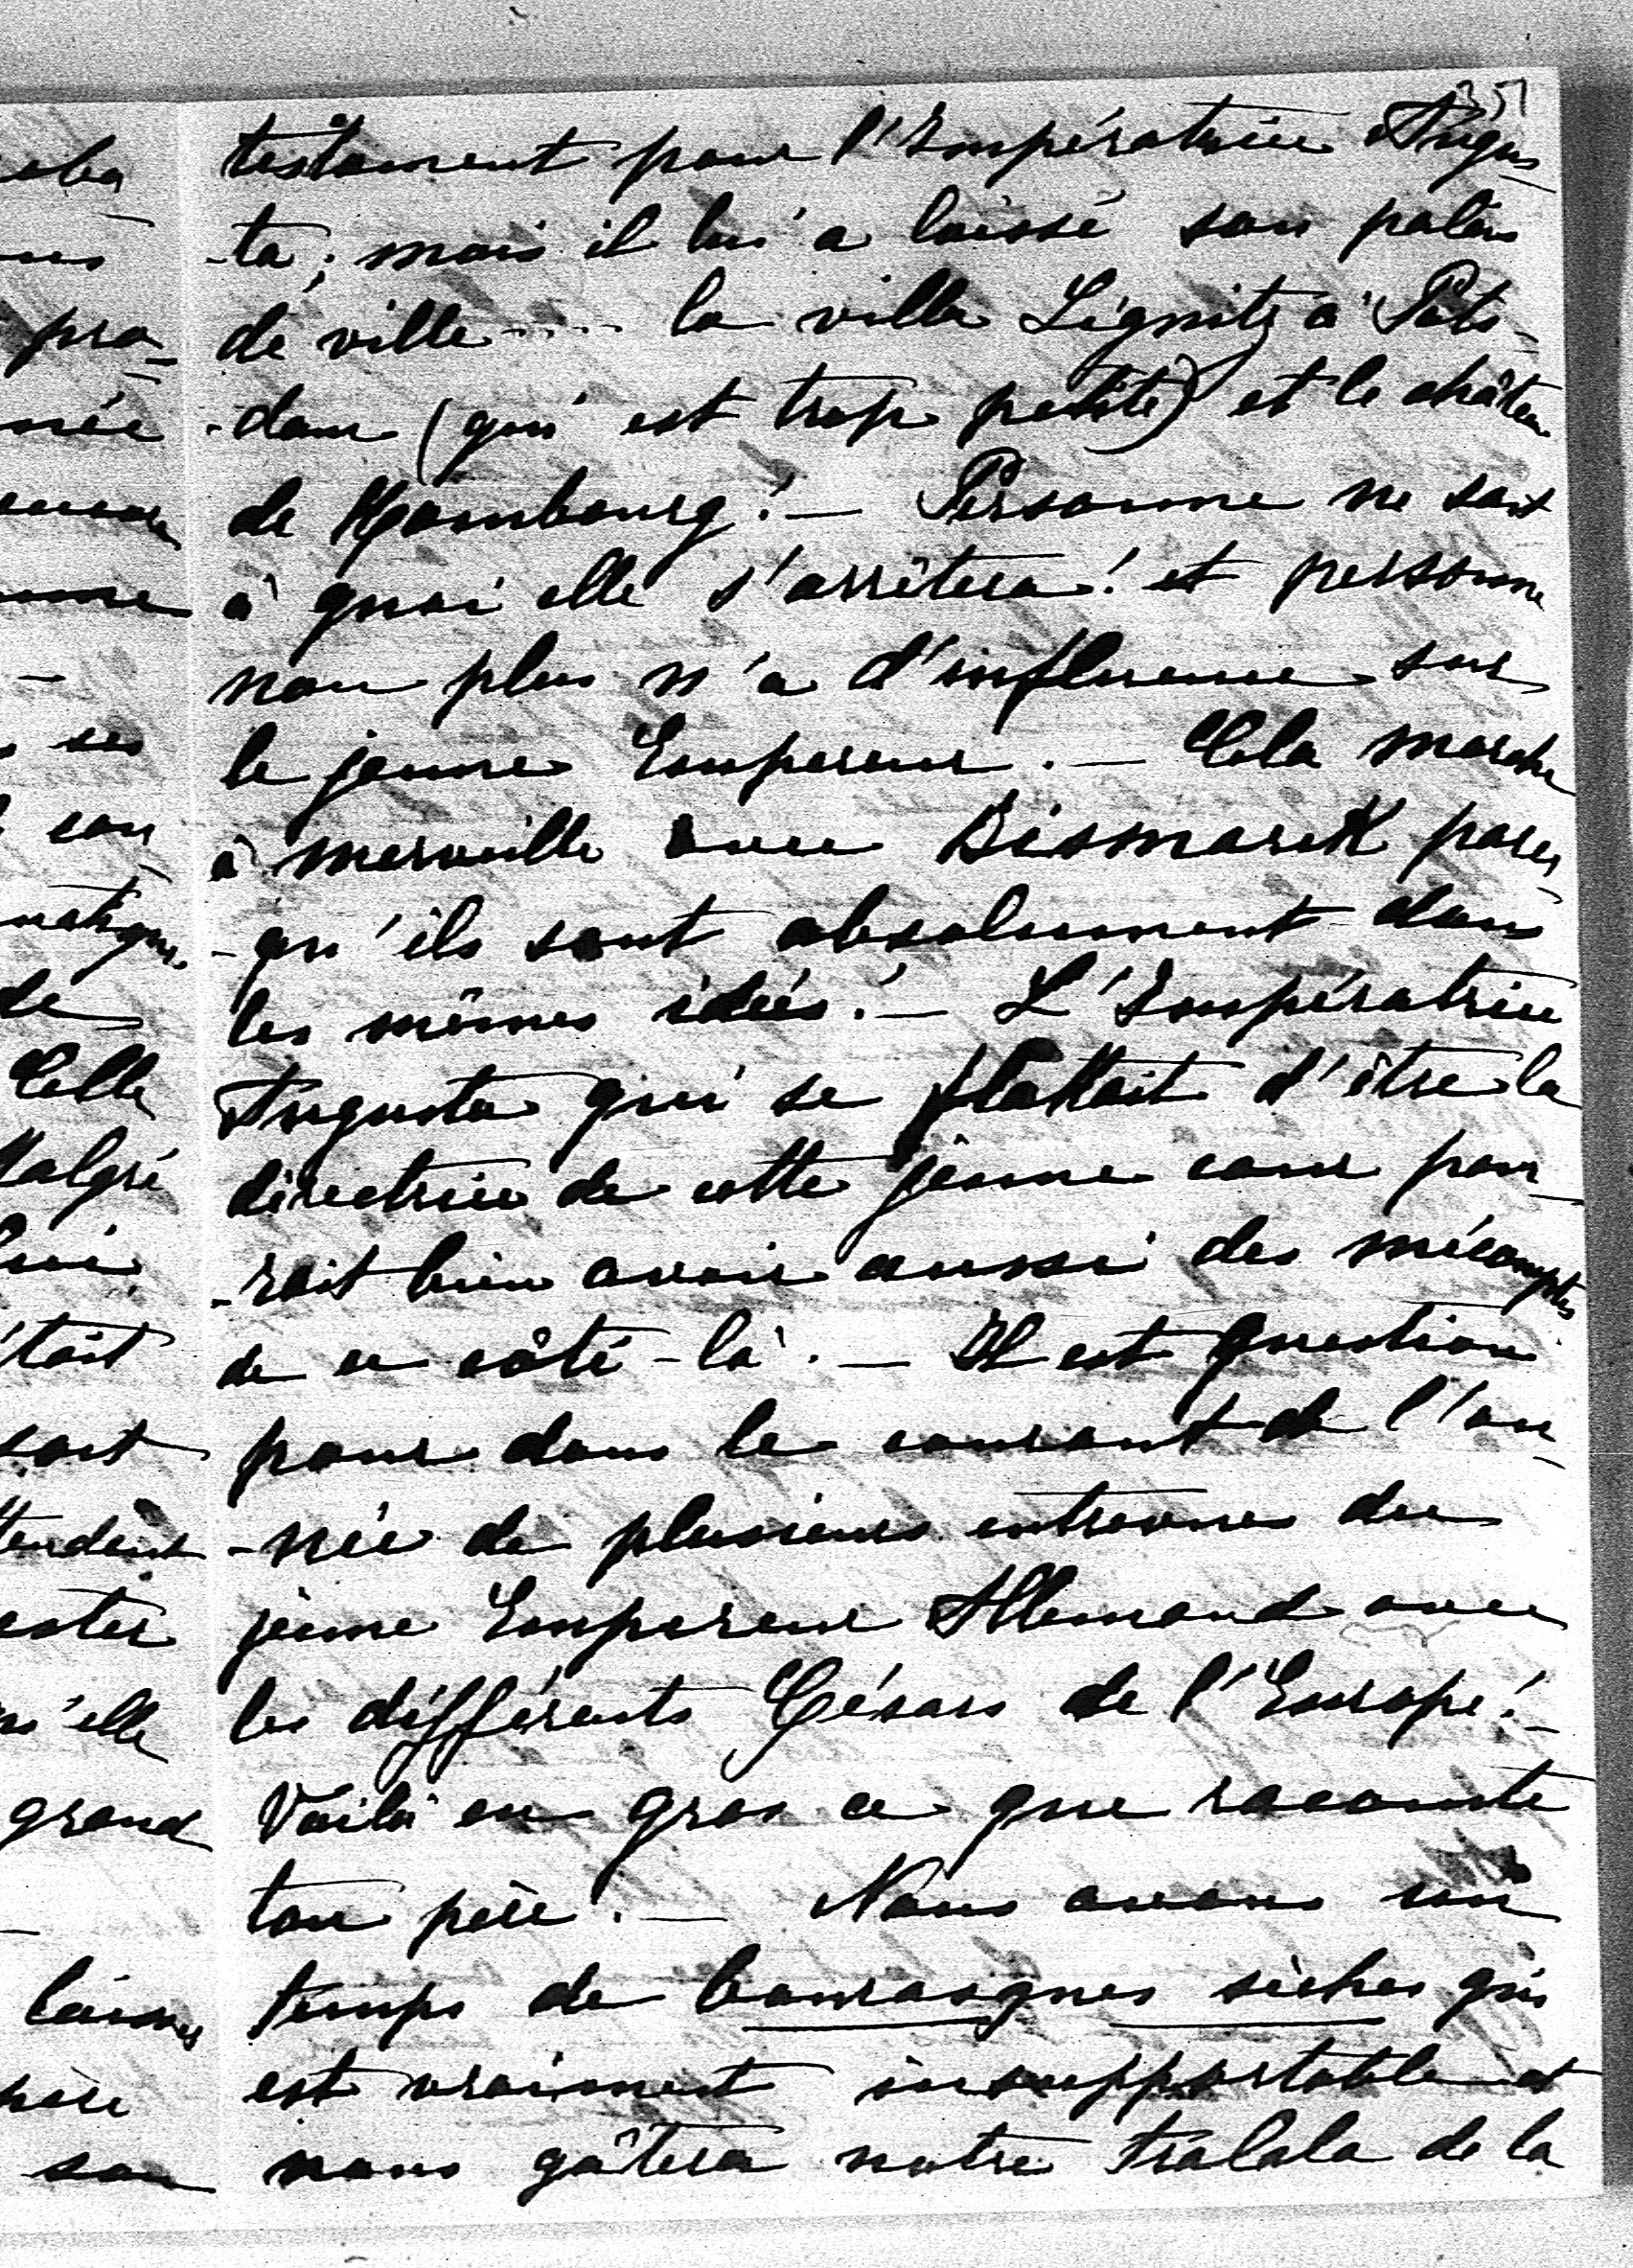 351
testament pour l'Impératrice Augus-
-ta; mais il lui a laissé son palais
de ville .... la villa Lignitz à Pots-
-dam (qui est trop petite) et le château
de Hombourg! — Personne ne sait
à quoi elle s'arrêtera! et personne
non plus n'a d'influence sur
le jeune Empereur. — Cela marche
à merveille avec Bismarck parce
-qu'ils sont absolument dans
les mêmes idées! — L'Impératrice
Augusta qui se flattait d'être la
directrice de cette jeune cour pour-
-rait bien avoir aussi des mécomptes
de ce côté-là. — Il est question
pour dans le courant de l'an-
-née de plusieurs entrevues du
jeune Empereur Allemand avec
les différents Césars de l'Europe! —
Voilà en gros ce que raconte
ton père. — Nous avons un
temps de bourasques sèches qui
est vraiment insupportable et
nous gâtera notre tralala de la
pro-
née
ses
de
Celle
Malgré
était
soit
qu'elle
grand
son